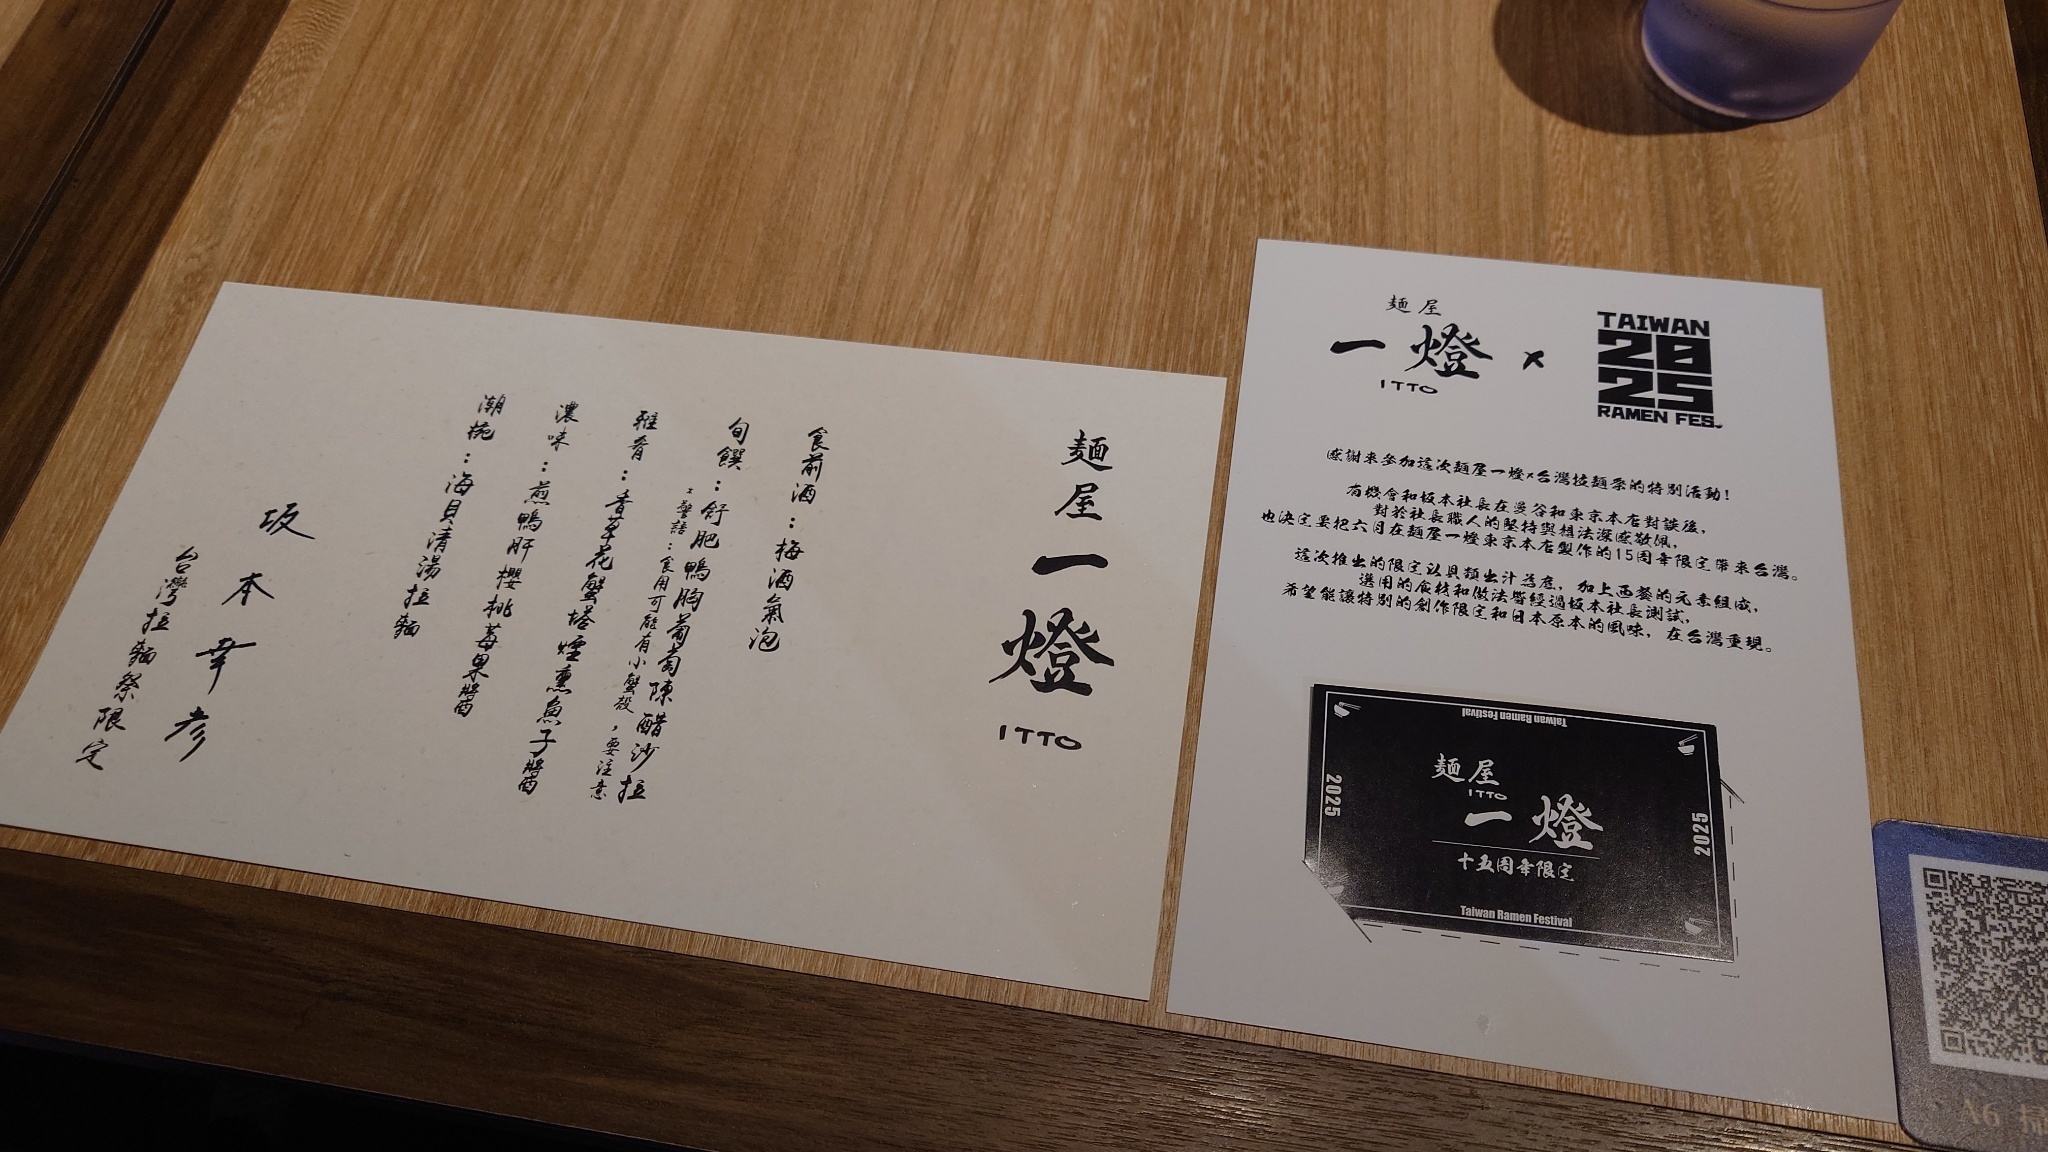 麵屋
一燈
ITTO
食前酒：梅酒氣泡
旬饌：舒肥鴨胸葡萄陳醋沙拉
雅肴：香草花蟹塔煙熏魚子醬
*警語：食用可能有小蟹殼，要注意
濃味：煎鴨肝櫻桃莓果醬
潮椀：海貝清湯拉麵
坂本幸彦
台灣拉麵祭限定
麵屋
一燈
ITTO
×
TAIWAN
20
25
RAMEN FES.
感謝來參加這次麵屋一燈×台灣拉麵祭的特別活動!
有機會和坂本社長在曼谷和東京本店對談後,
對於社長職人的堅持與想法深感敬佩,
也決定要把六月在麵屋一燈東京本店製作的15周年限定帶來台灣。
這次推出的限定以貝類出汁為底，加上西餐的元素組成,
選用的食材和做法皆經過坂本社長測試,
希望能讓特別的創作限定和日本原本的風味，在台灣重現。
Taiwan Ramen Festival
2025
麵屋
ITTO
一燈
十五周年限定
2025
Taiwan Ramen Festival
A6